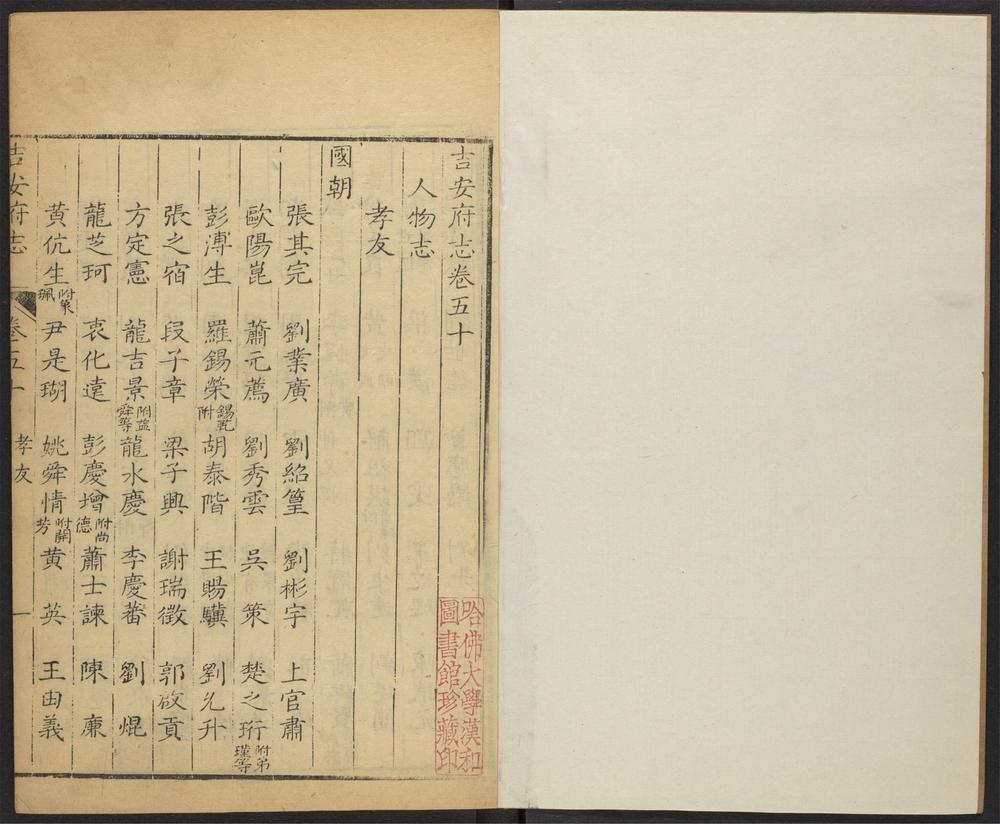 吉安府志卷五十
人物志
孝友
國朝
張其完 劉業廣 劉紹篁 劉彬宇 上官肅
歐陽崑 蕭元薦 劉秀雲 吳策 楚之珩附弟瑾等
彭溥生 羅錫榮錫乾附 胡泰階 王賜驥 劉允升
張之宿 段子章 梁子興 謝瑞徵 郭啟貢
方定憲 龍吉景附盛舜等 龍水慶 李慶蕃 劉焜
龍芝珂 衷化遠 彭慶增附尚德 蕭士諫 陳廉
黃伉生附策珮 尹是瑚 姚舜情附開芳 黃英 王由義
吉安府志 卷五十 孝友 一
哈佛大學漢和圖書館珍藏印